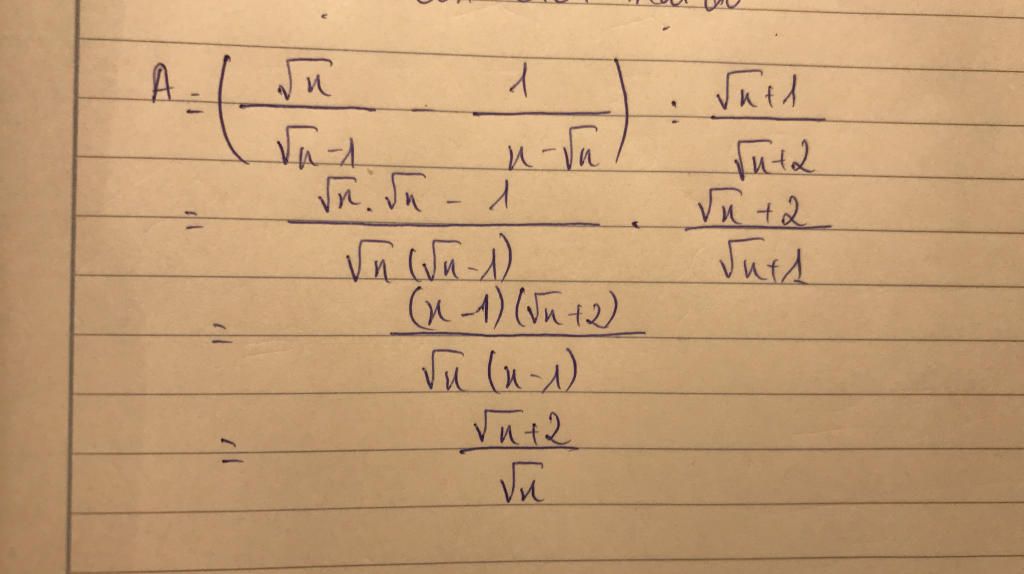 A = ( √x / (√x-1) - 1 / (x-√x) ) : (√x+1) / (√x+2)
= (√x . √x - 1) / (√x (√x-1)) . (√x+2) / (√x+1)
= (x-1)(√x+2) / (√x (x-1))
= (√x+2) / √x